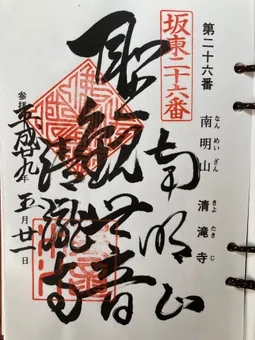 第二十六番
南明山 清滝寺
なんめいざん きよたきじ
坂東二十六番
南明山
聖観世音
清瀧寺
参拝 平成廿九年五月廿一日